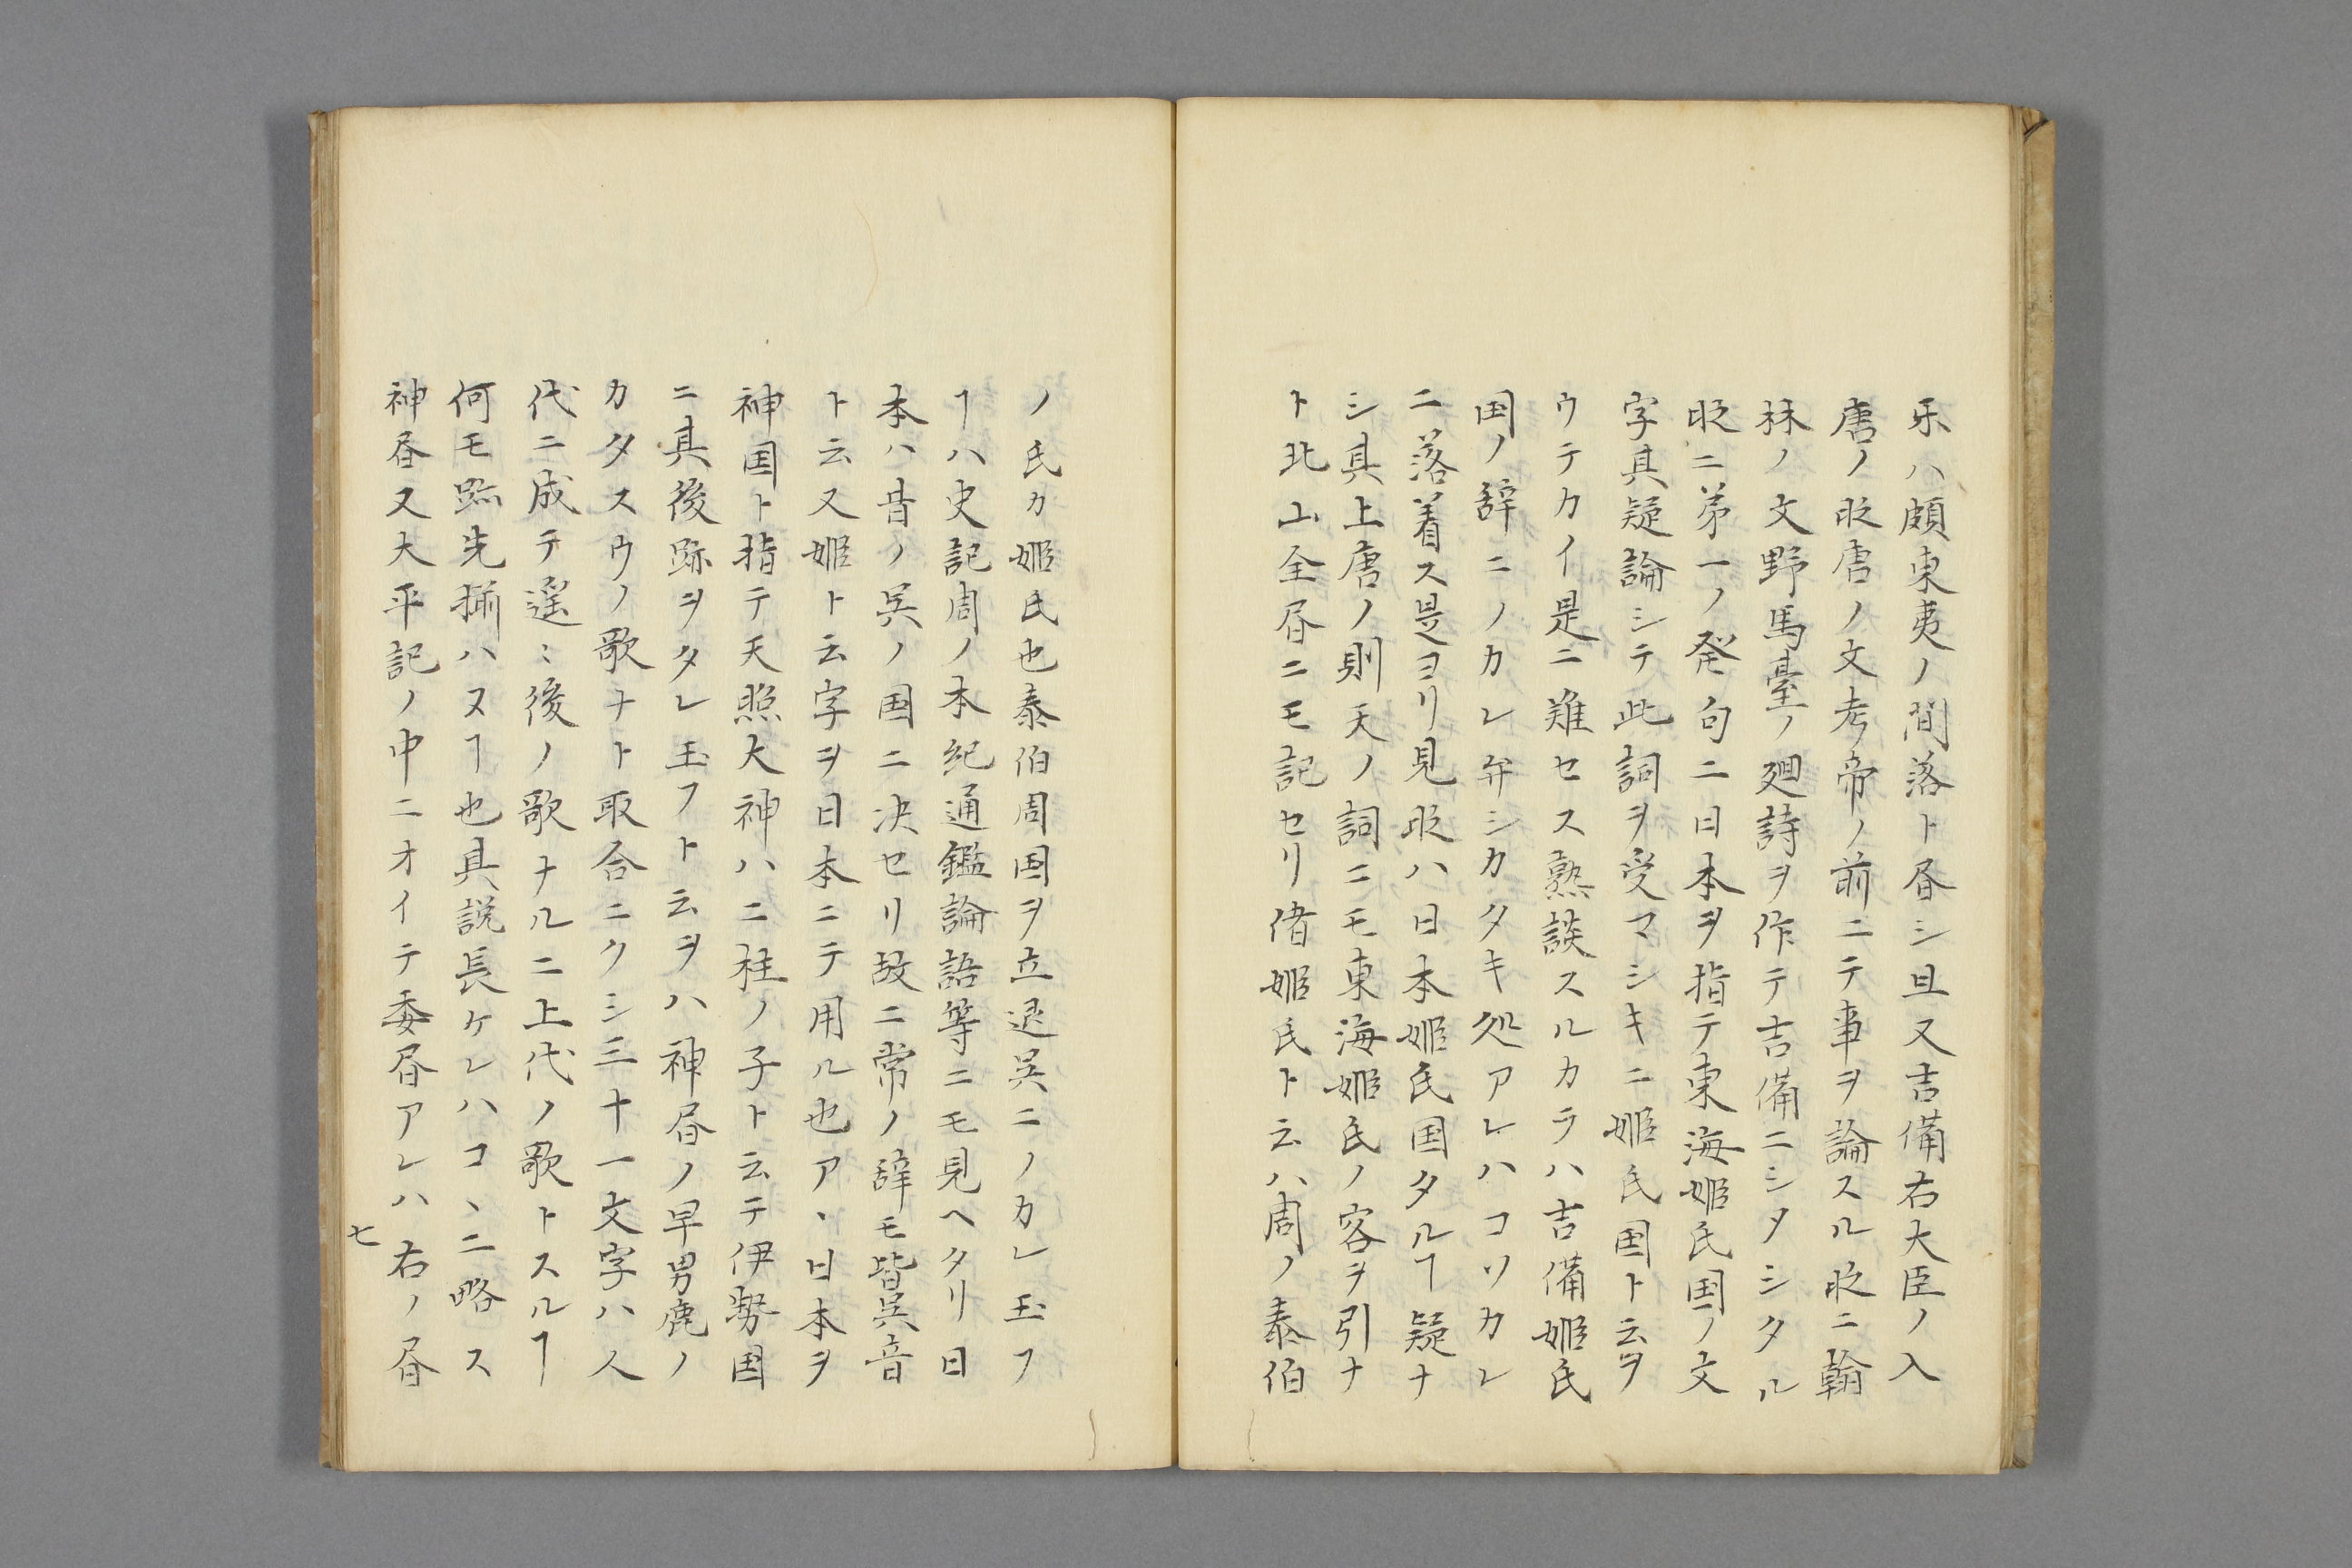 乐ハ頗東夷ノ間落ト昼シ且又吉備右大臣ノ入
唐ノ砌唐ノ文考帝ノ前ニテ事ヲ論スル砌ニ翰
林ノ文野馬臺ノ廻詩ヲ作テ吉備ニシメシタル
砌ニ第一ノ発句ニ日本ヲ指テ東海姫氏国ノ文
字其疑論シテ此詞ヲ受マシキニ姫氏国ト云ヲ
ウテカイ是ニ難セス熟談スルカラハ吉備姫氏
国ノ辞ニノカレ弁シカタキ処アレハコソカレ
ニ落着ス是ヨリ見砌ハ日本姫氏国タルヿ疑ナ
シ其上唐ノ則天ノ詞ニモ東海姫氏ノ客ヲ引ナ
ト北山全昼ニモ記セリ偖姫氏ト云ハ周ノ泰伯
ノ氏カ姫氏也泰伯周国ヲ立退呉ニノカレ玉フ
ヿハ史記周ノ本紀通鑑論語等ニモ見ヘタリ日
本ハ昔ノ呉ノ国ニ决セリ故ニ常ノ辞モ皆呉音
ト云又姫ト云字ヲ日本ニテ用ル也ア丶日本ヲ
神国ト指テ天照大神ハ二柱ノ子ト云テ伊勢国
ニ其後跡ヲタレ玉フト云ヲハ神昼ノ早男鹿ノ
カタスウノ歌ナト取合ニクシ三十一文字ハ人
代ニ成テ遥〻後ノ歌ナルニ上代ノ歌トスルヿ
何モ跡先揃ハヌヿ也其説長ケレハコ丶ニ略ス
神昼又大平記ノ中ニオイテ委昼アレハ右ノ昼
七